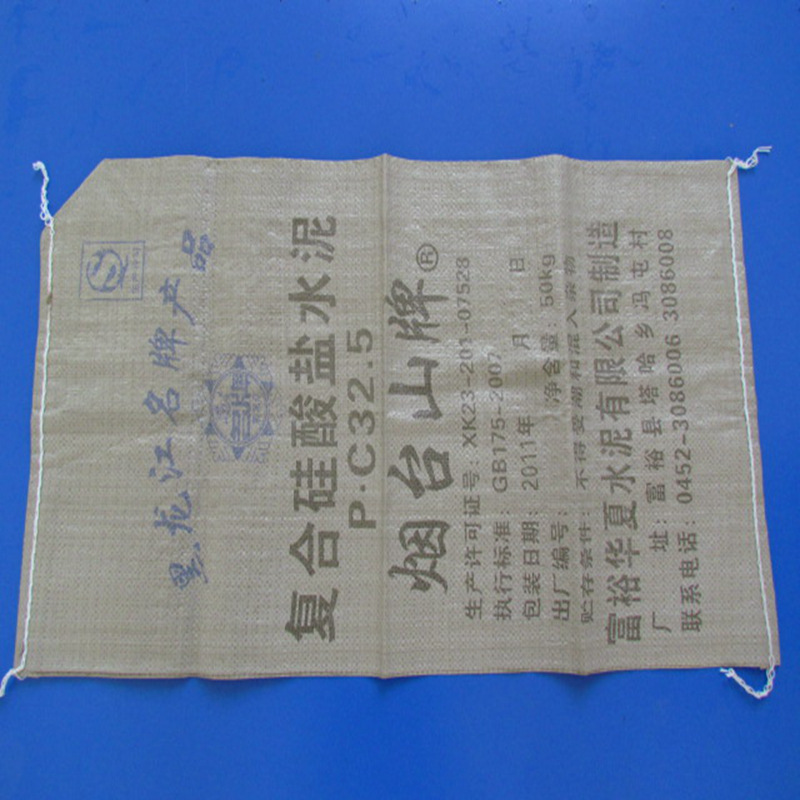 黑龙江名牌产品
复合硅酸盐水泥
P·C32.5
烟台山牌®
生产许可证号：XK23-201-07528
执行标准：GB175-2007
包装日期：2011年 月 日
出厂编号： 净含量：50kg
贮存条件：不得受潮和混入杂物
富裕华夏水泥有限公司制造
厂 址：富裕县塔哈乡冯屯村
联系电话：0452-3086006 3086008